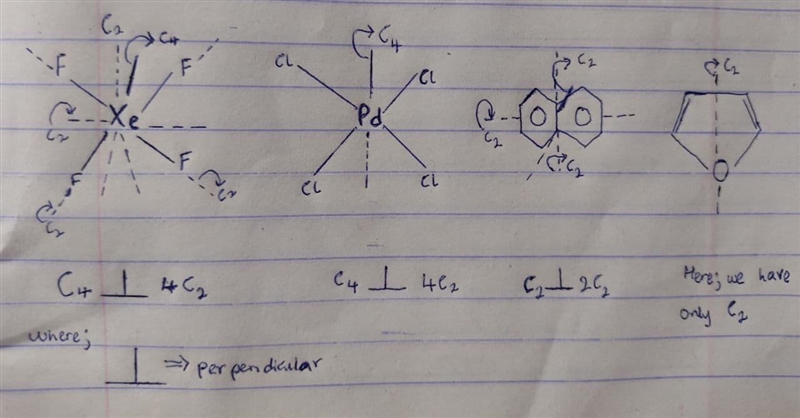 C2 C4
F F
C2 Xe
F F
C2 C2
C4
Cl Cl
Pd
Cl Cl
C2
C2
C2
C2
O
C4 ⊥ 4C2
C4 ⊥ 4C2
C2 ⊥ 2C2
Here; we have
only C2
where;
⊥ ⇒ perpendicular